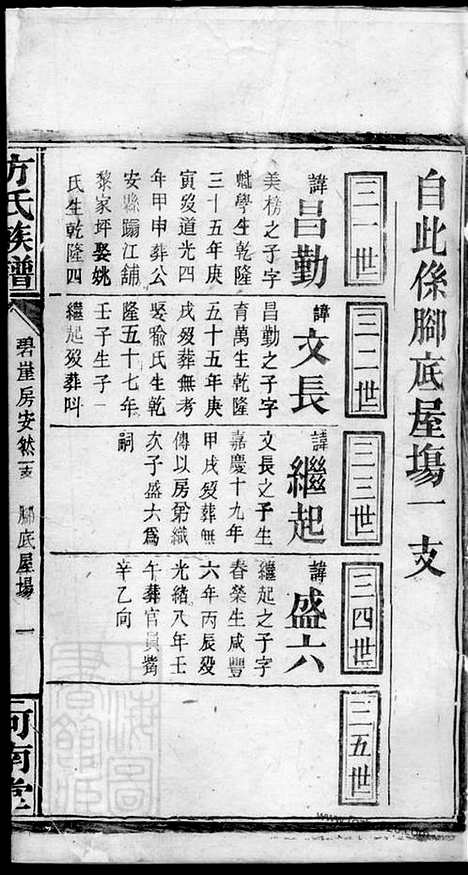 自此係腳底屋塲一支
三一世
諱昌勤
美榜之子字
魁學生乾隆
三十五年庚
寅歿道光四
年甲申葬公
安縣蹋江舖
黎家坪娶姚
氏生乾隆四
三二世
諱文長
昌勤之子字
育萬生乾隆
五十五年庚
戌歿葬無考
娶喻氏生乾
隆五十七年
壬子生子一
繼起歿葬呌
三三世
諱繼起
文長之子生
嘉慶十九年
甲戌歿葬無
傳以房弟織
次子盛六為
嗣
三四世
諱盛六
繼起之子字
春榮生咸豐
六年丙辰歿
光緒八年壬
午葬官員嘴
辛乙向
三五世
方氏族譜
碧崖房安然支
腳底屋塲
一
河南堂